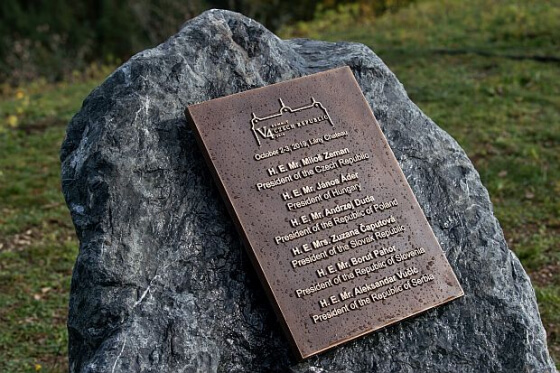 V4
CZECH REPUBLIC
October 2-3, 2019, Lány Chateau
H. E. Mr. Miloš Zeman
President of the Czech Republic
H. E. Mr. János Áder
President of Hungary
H. E. Mr. Andrzej Duda
President of the Republic of Poland
H. E. Mrs. Zuzana Čaputová
President of the Slovak Republic
H. E. Mr. Borut Pahor
President of the Republic of Slovenia
H. E. Mr. Aleksandar Vučić
President of the Republic of Serbia